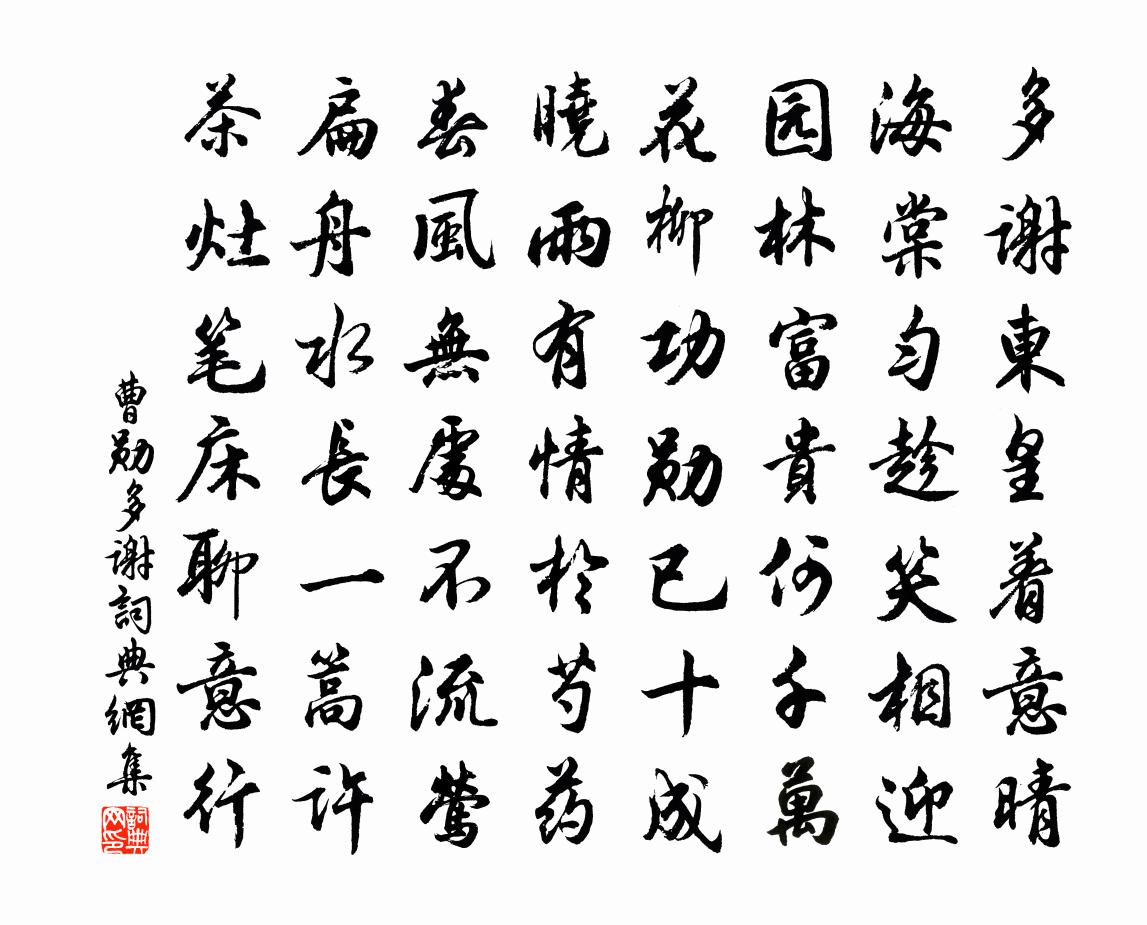 多谢東皇着意晴
海棠匀趁笑相迎
园林富貴何千萬
花柳功勋已十成
曉雨有情於芍药
春風無處不流莺
扁舟水長一篙许
茶灶笔床聊意行
曹勋多谢詞典網集
詞典网印